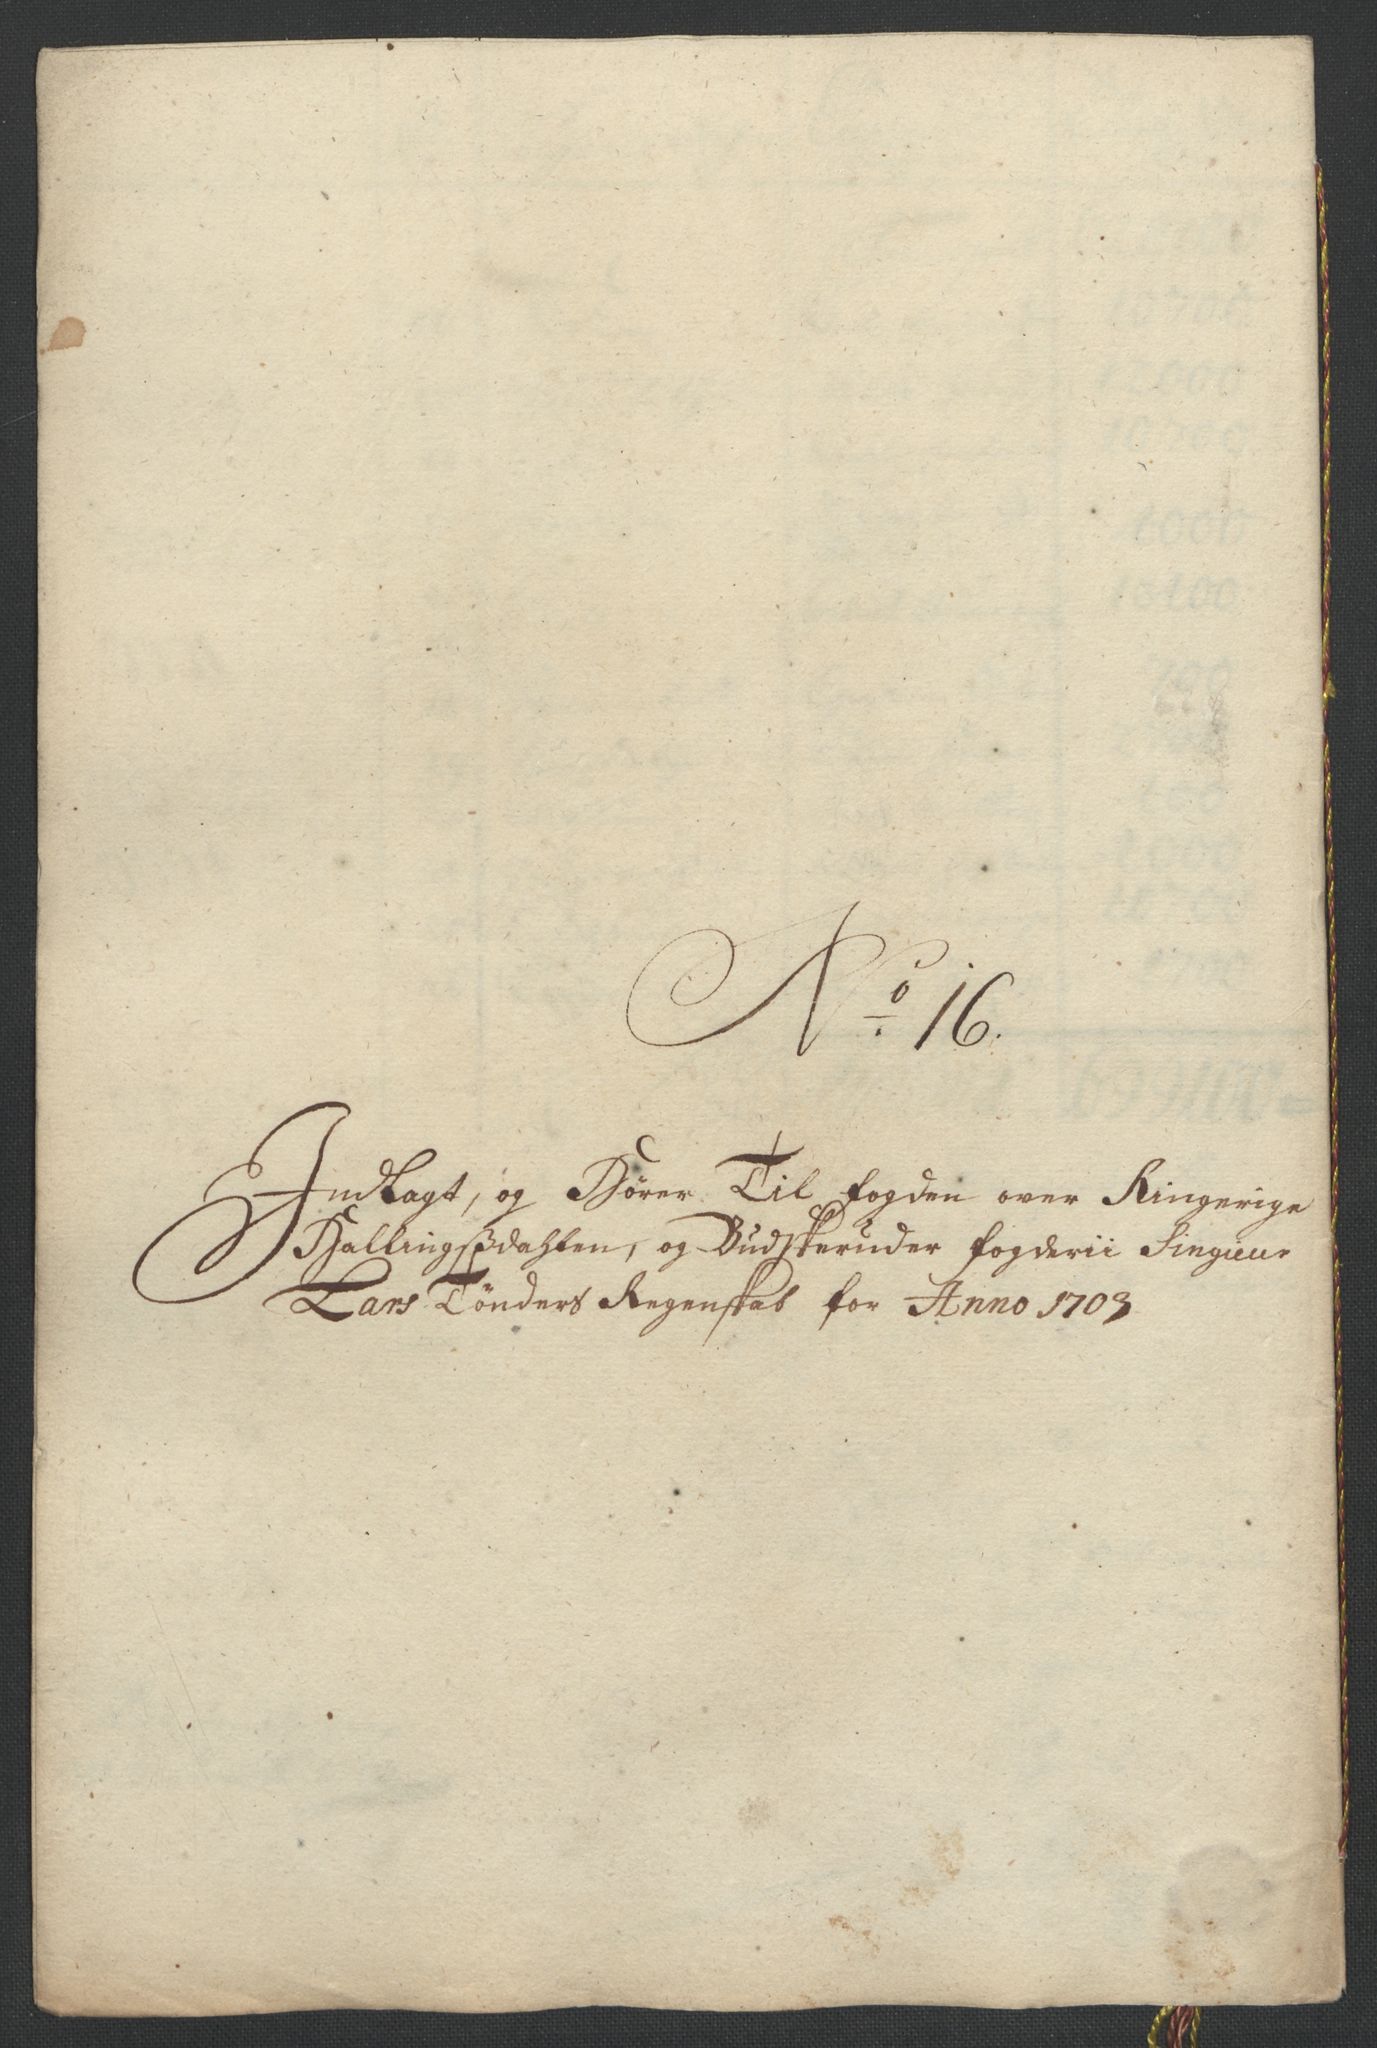 No 16.
Indlagt, og Hörer Til fogden over Ringerige
Hallingsdahlen, og Budskeruder fogderii Singnr
Lars Tönders Regenskab for Anno 1703